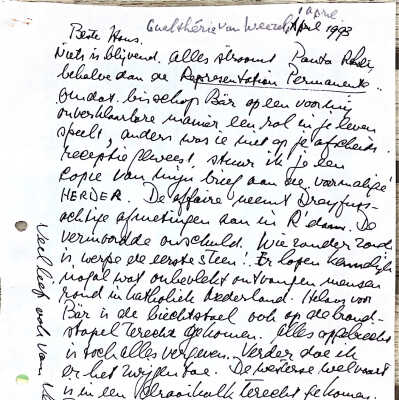 1 April
Gualthérie van Weezel, April 1993
Beste Hans.
Niets is blijvend. Alles stroomt Panta Rhei,
behalve dan de Representation Permanente..
Omdat bisschop Bär op een voor mij
onverklaarbare manier een rol in je leven
speelt, anders was ie niet op je afscheids-
receptie geweest, stuur ik je een
copie van mijn brief aan de voormalige
HERDER. De affaire neemt Dreyfus-
achtige afmetingen aan in R'dam. De
vermoorde onschuld. Wie zonder zonde
is werpe de eerste steen! Er lopen kennelijk
nogal wat onbevlekt ontvangen mensen
rond in katholiek Nederland. Helaas voor
Bär is de biechtstoel ook op de brand-
stapel terecht gekomen. Alles opgebiecht
is toch alles vergeven. Verder doe ik
er het zwijgen toe. De westerse welvaart
is in een draaikolk terecht gekomen.
Veel liefs ook van